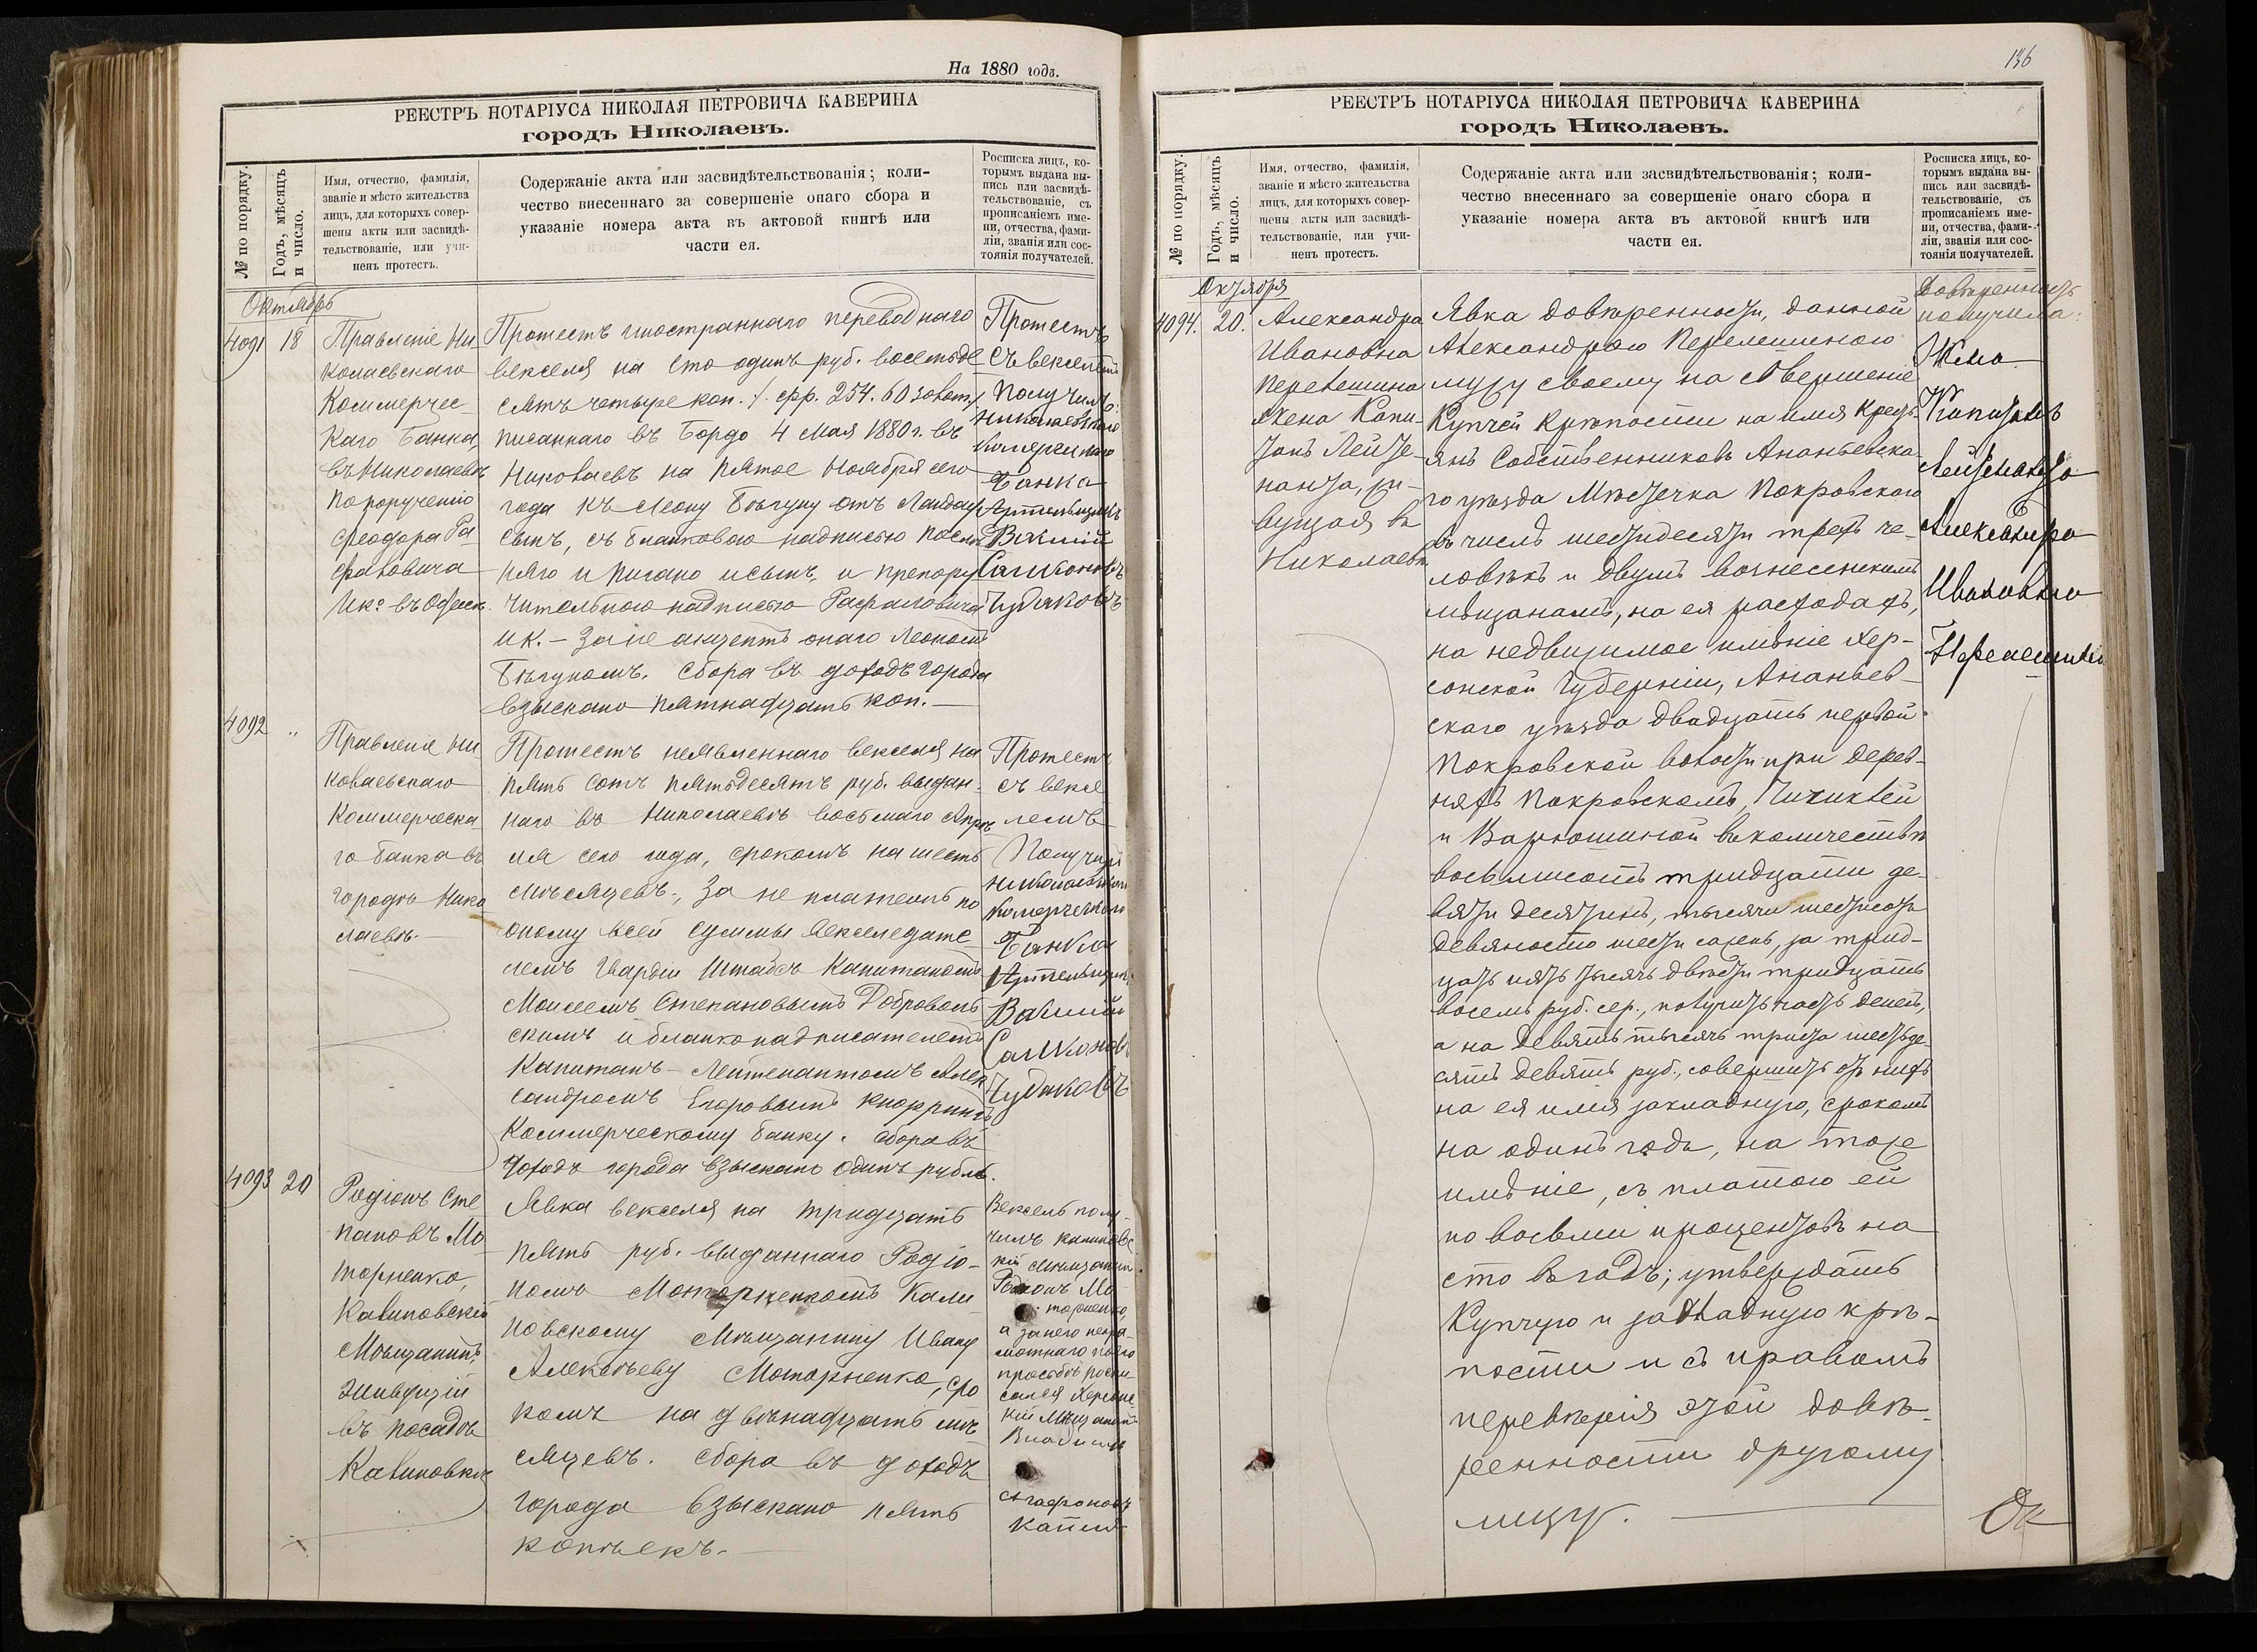 На 1880 годъ.
РЕЕСТРЪ НОТАРІУСА НИКОЛАЯ ПЕТРОВИЧА КАВЕРИНА
городъ Николаевъ.
№ по порядку.
Годъ, мѣсяцъ
и число.
Имя, отчество, фамилія,
званіе и мѣсто жительства
лицъ, для которыхъ совер-
шены акты или засвидѣ-
тельствованіе, или учи-
ненъ протестъ.
Содержаніе акта или засвидѣтельствованія; коли-
чество внесеннаго за совершеніе онаго сбора и
указаніе номера акта въ актовой книгѣ или
части ея.
Росписка лицъ, ко-
торымъ выдана вы-
пись или засвидѣ-
тельствованіе, съ
прописаніемъ име-
ни, отчества, фами-
ліи, званія или сос-
тоянія получателей.
Октябрь
4091
18
Правленіе Ни-
колаевскаго
Коммерчес-
каго Банка,
въ Николаевѣ
по порученію
Ѳеодора Ра-
фаловича
и Кº въ Одессѣ.
Протестъ иностраннаго переводнаго
векселя на сто одинъ руб. восемьде
сятъ четыре коп. /. фр. 254. 60 золот./
писаннаго въ Бордо 4 Мая 1880 г. въ
Николаевъ на пятое Ноября сего
года къ Леону Бѣгуну отъ Ландау
сынъ, съ бланковою надписью послѣд
няго и сынъ, и препору
чительною надписью Рафаловича
и К. – За не акцептъ онаго Леономъ
Бѣгуномъ. Сбора въ доходъ города
взыскано пятнадцать коп. —
Протестъ
съ векселемъ
Получилъ:
Николаевскаго
Комерческаго
Банка
Артельщикъ
Василій
Чудаковъ
4092
"
Правленіе Ни-
колаевскаго
Коммерческа
го банка въ
городѣ Нико
лаевѣ. —
Протестъ неявленнаго векселя на
пять сотъ пятьдесятъ руб. выдан-
наго въ Николаевѣ восьмаго Апрѣ
ля сего года, срокомъ на шесть
мѣсяцевъ. За не платежъ по
оному всей суммы векселедате
лемъ Гвардіи Штабсъ Капитаномъ
Моисеемъ Степановымъ Доброволь
скимъ и бланконадписателемъ
Капитанъ-Лейтенантомъ Алек
сандромъ Егоровымъ Кноррингъ
Коммерческому банку. Сбора въ
доходъ города взыскано одинъ рубль.
Протестъ
съ вексе
лемъ
Получилъ
Николаевскаго
Комерческаго
Банка
Артельщикъ
Василій
Чудаковъ
4093
20
Родіонъ Сте
пановъ Мо
торненко,
Калиновскій
Мѣщанинъ,
Живущій
въ посадѣ
Калиновкѣ
Явка векселя на тридцать
пять руб. выданнаго Родіо-
номъ Моторненкомъ Кали
новскому Мѣщанину Ивану
Алексѣеву Моторненко, сро
комъ на двѣнадцать мѣ
сяцевъ. Сбора въ доходъ
города взыскано пять
копѣекъ. —
Вексель полу-
чилъ калиновс
кій Мѣщанинъ
Родіонъ Мо
торненко,
а за него негра-
мотнаго по его
просьбѣ роспи-
сался Херсонс
кій Мѣщанинъ
Агафоновъ
136
РЕЕСТРЪ НОТАРІУСА НИКОЛАЯ ПЕТРОВИЧА КАВЕРИНА
городъ Николаевъ.
№ по порядку.
Годъ, мѣсяцъ
и число.
Имя, отчество, фамилія,
званіе и мѣсто жительства
лицъ, для которыхъ совер-
шены акты или засвидѣ-
тельствованіе, или учи-
ненъ протестъ.
Содержаніе акта или засвидѣтельствованія; коли-
чество внесеннаго за совершеніе онаго сбора и
указаніе номера акта въ актовой книгѣ или
части ея.
Росписка лицъ, ко-
торымъ выдана вы-
пись или засвидѣ-
тельствованіе, съ
прописаніемъ име-
ни, отчества, фами-
ліи, званія или сос-
тоянія получателей.
Октября
4094.
20.
Александра
Ивановна
Перелешина
жена Капи-
танъ Лейте-
нанта, жи-
вущая въ
Николаевѣ
Явка довѣренности, данной
Александрою Перелешиною
мужу своему на совершеніе
Купчей крѣпости на имя крест-
янъ собственниковъ Ананьевска-
го уѣзда Мѣстечка Покровского
въ числѣ шестидесяти трехъ че-
ловѣкъ и двумъ вознесенскимъ
мѣщанамъ, на ея расходахъ,
на недвижимое имѣніе Хер-
сонской Губерніи, Ананьев-
скаго уѣзда двадцать первой
Покровской волости при дерев-
няхъ Покровскомъ, Чичиклеи
и Варюшиной въ количествѣ
восьмисотъ тридцати де-
вяти десятинъ, тысячи шестисотъ
девяносто шести сажень, за трид-
цать пять тысячъ двѣсти тридцать
восемь руб. сер., получить часть денегъ,
а на девять тысячъ триста шестьде-
сятъ девять руб., совершить отъ нихъ
на ея имя закладную, срокомъ
на одинъ годъ, на тоже
имѣніе, съ платою ей
по восьми процентовъ на
сто въ годъ; утверждать
Купчую и закладную крѣ-
пости и съ правомъ
перевѣрія этой довѣ-
ренности другому
лицу. —
Довѣренность
получила:
Жена
Капитанъ
Лейтенанта
Александра
Ивановна
Перелешина